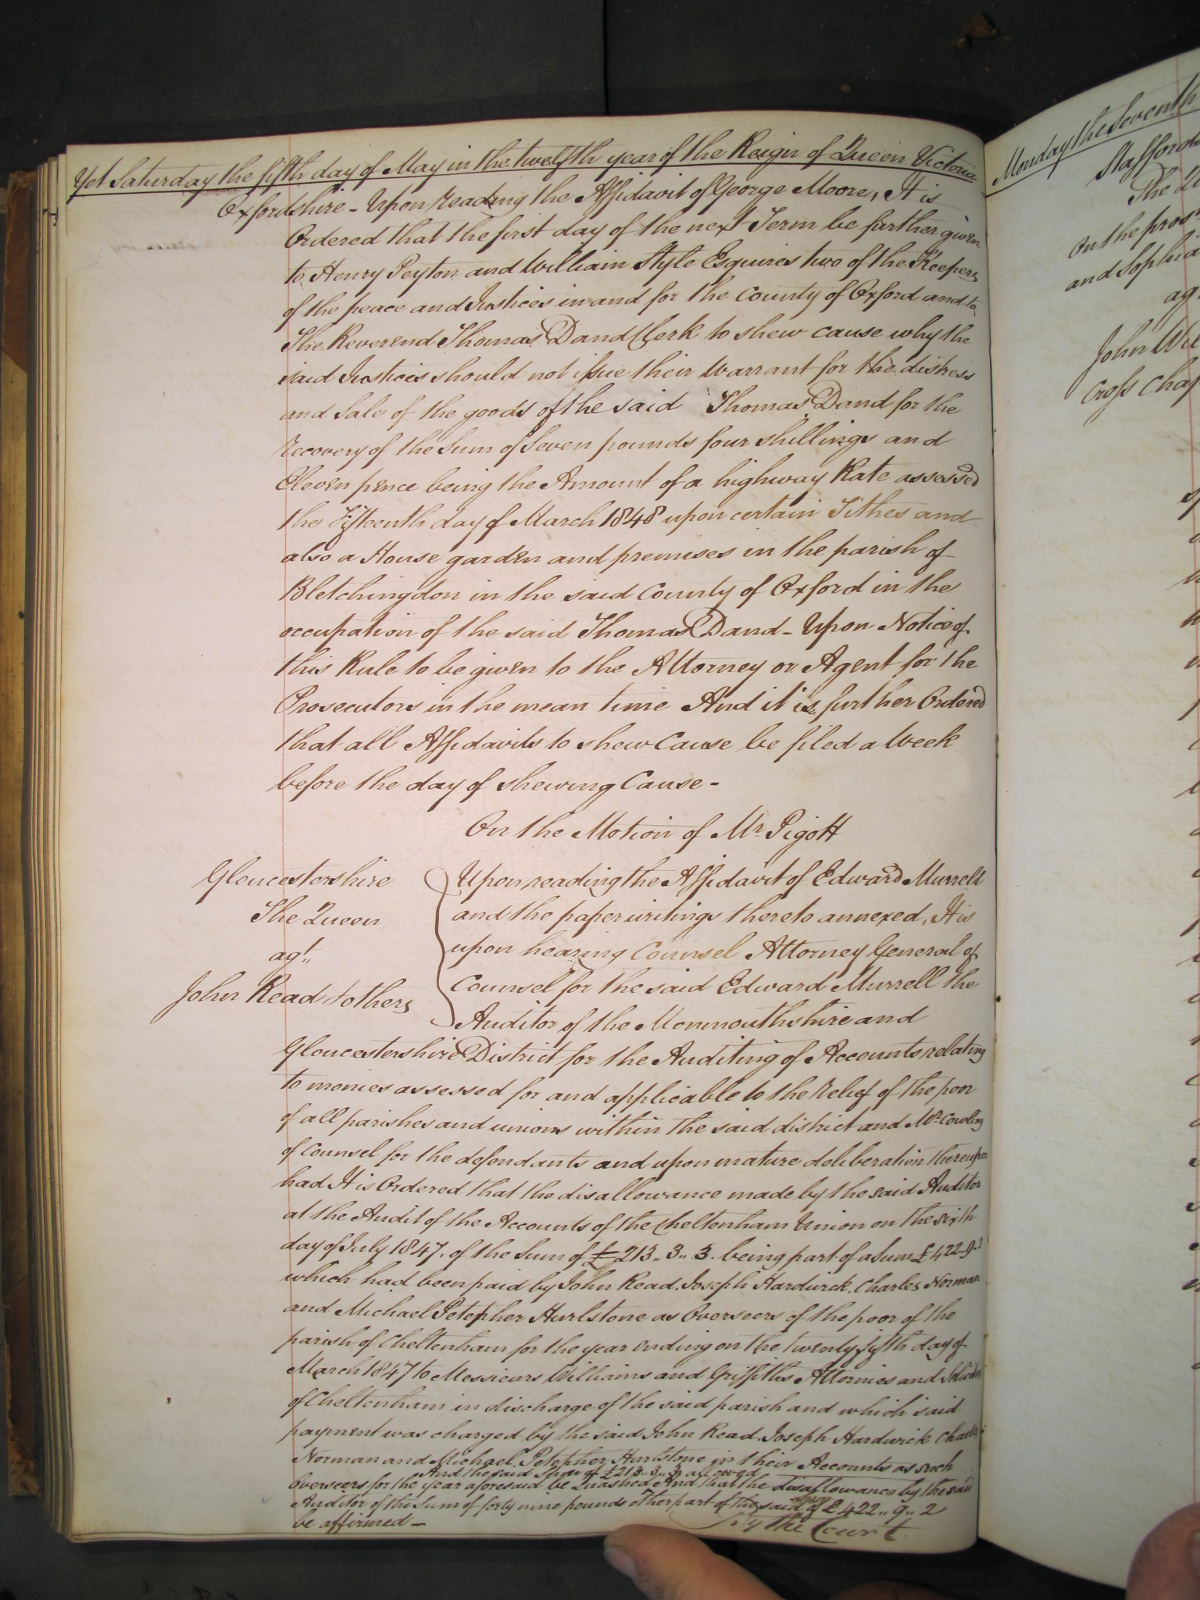 Yet Saturday the fifth day of May in the twelfth year of the Reign of Queen Victoria
Oxfordshire - Upon reading the Affidavit of George Moore, It is
Ordered that the first day of the next Term be further given
to Henry Peyton and William Style Esquires two of the Keepers
of the peace and Justices in and for the County of Oxford and to
The Reverend Thomas Dand Clerk to shew cause why the
said Justices should not issue their Warrant for the distress
and Sale of the goods of the said Thomas Dand for the
recovery of the Sum of Seven pounds four shillings and
Eleven pence being the Amount of a highway Rate assessed
the Fifteenth day of March 1848 upon certain Tithes and
also a House garden and premises in the parish of
Bletchingdon in the said County of Oxford in the
occupation of the said Thomas Dand - Upon Notice of
this Rule to be given to the Attorney or Agent for the
Prosecutors in the mean time And it is further Ordered
that all Affidavits to shew Cause be filed a Week
before the day of shewing Cause -
On the Motion of Mr Pigott
Gloucestershire
The Queen
agt.
John Read & others
Upon reading the Affidavit of Edward Murrell
and the paper writings thereto annexed, It is
upon hearing Counsel Attorney General of
Counsel for the said Edward Murrell the
Auditor of the Monmouthshire and
Gloucestershire District for the Auditing of Accounts relating
to monies assessed for and applicable to the relief of the poor
of all parishes and unions within the said district and Mr Cowling
of Counsel for the defendants and upon mature deliberation thereupon
had It is Ordered that the disallowance made by the said Auditor
at the Audit of the Accounts of the Cheltenham Union on the sixth
day of July 1847. of the Sum of £213.. 3.. 3. being part of a Sum £422..9..2
which had been paid by John Read, Joseph Hardwick, Charles Norman
and Michael Petepher Hurlstone as Overseers of the poor of the
parish of Cheltenham for the year ending on the twenty fifth day of
March 1847 to Messieurs Williams and Griffiths Attornies and
of Cheltenham in discharge of the said parish and which said
payment was charged by the said John Read, Joseph Hardwick Charles
Norman and Michael Petepher Hurlstone in their Accounts as such
And the said Sum of £213..3..3 allowed
Overseers for the year aforesaid be Quashed And that the disallowance by the said
Auditor of the Sum of forty nine pounds other part of the said of £422.. 9.. 2
be affirmed -
By the Court
Monday the Seventh
The
On the
and Sophia
ag
John
Cross